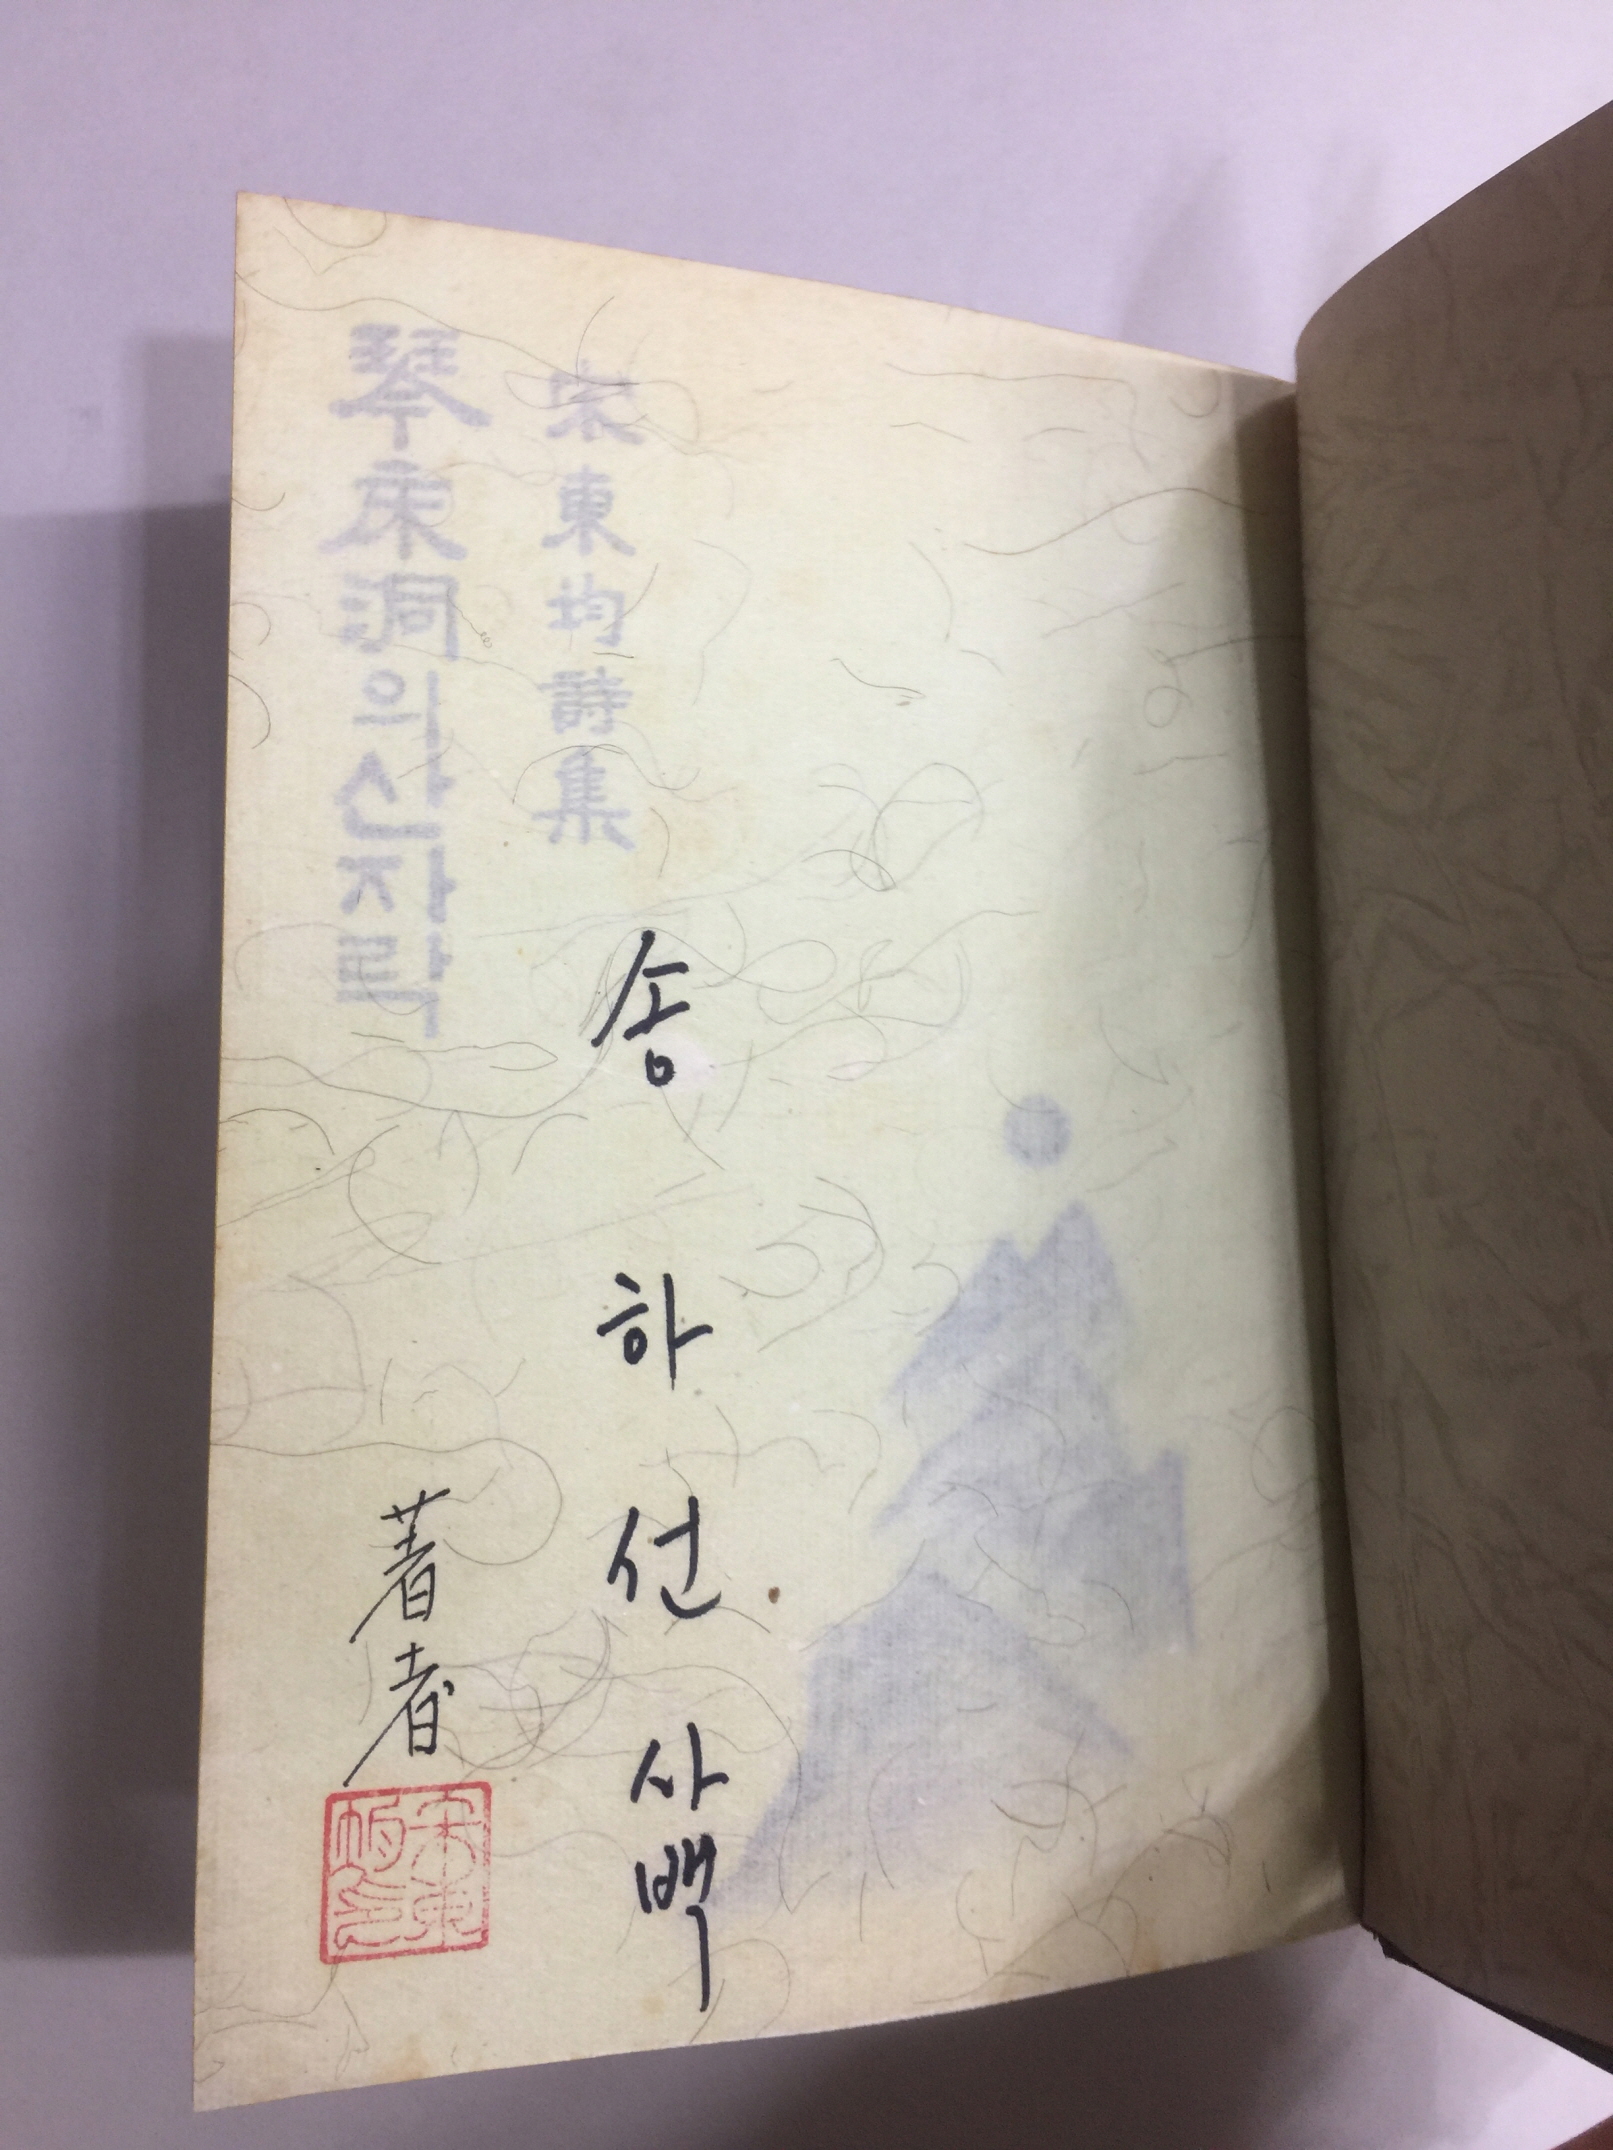 琴床洞의 산자락
宋東均詩集
송하선 사백
著者
宋東均印